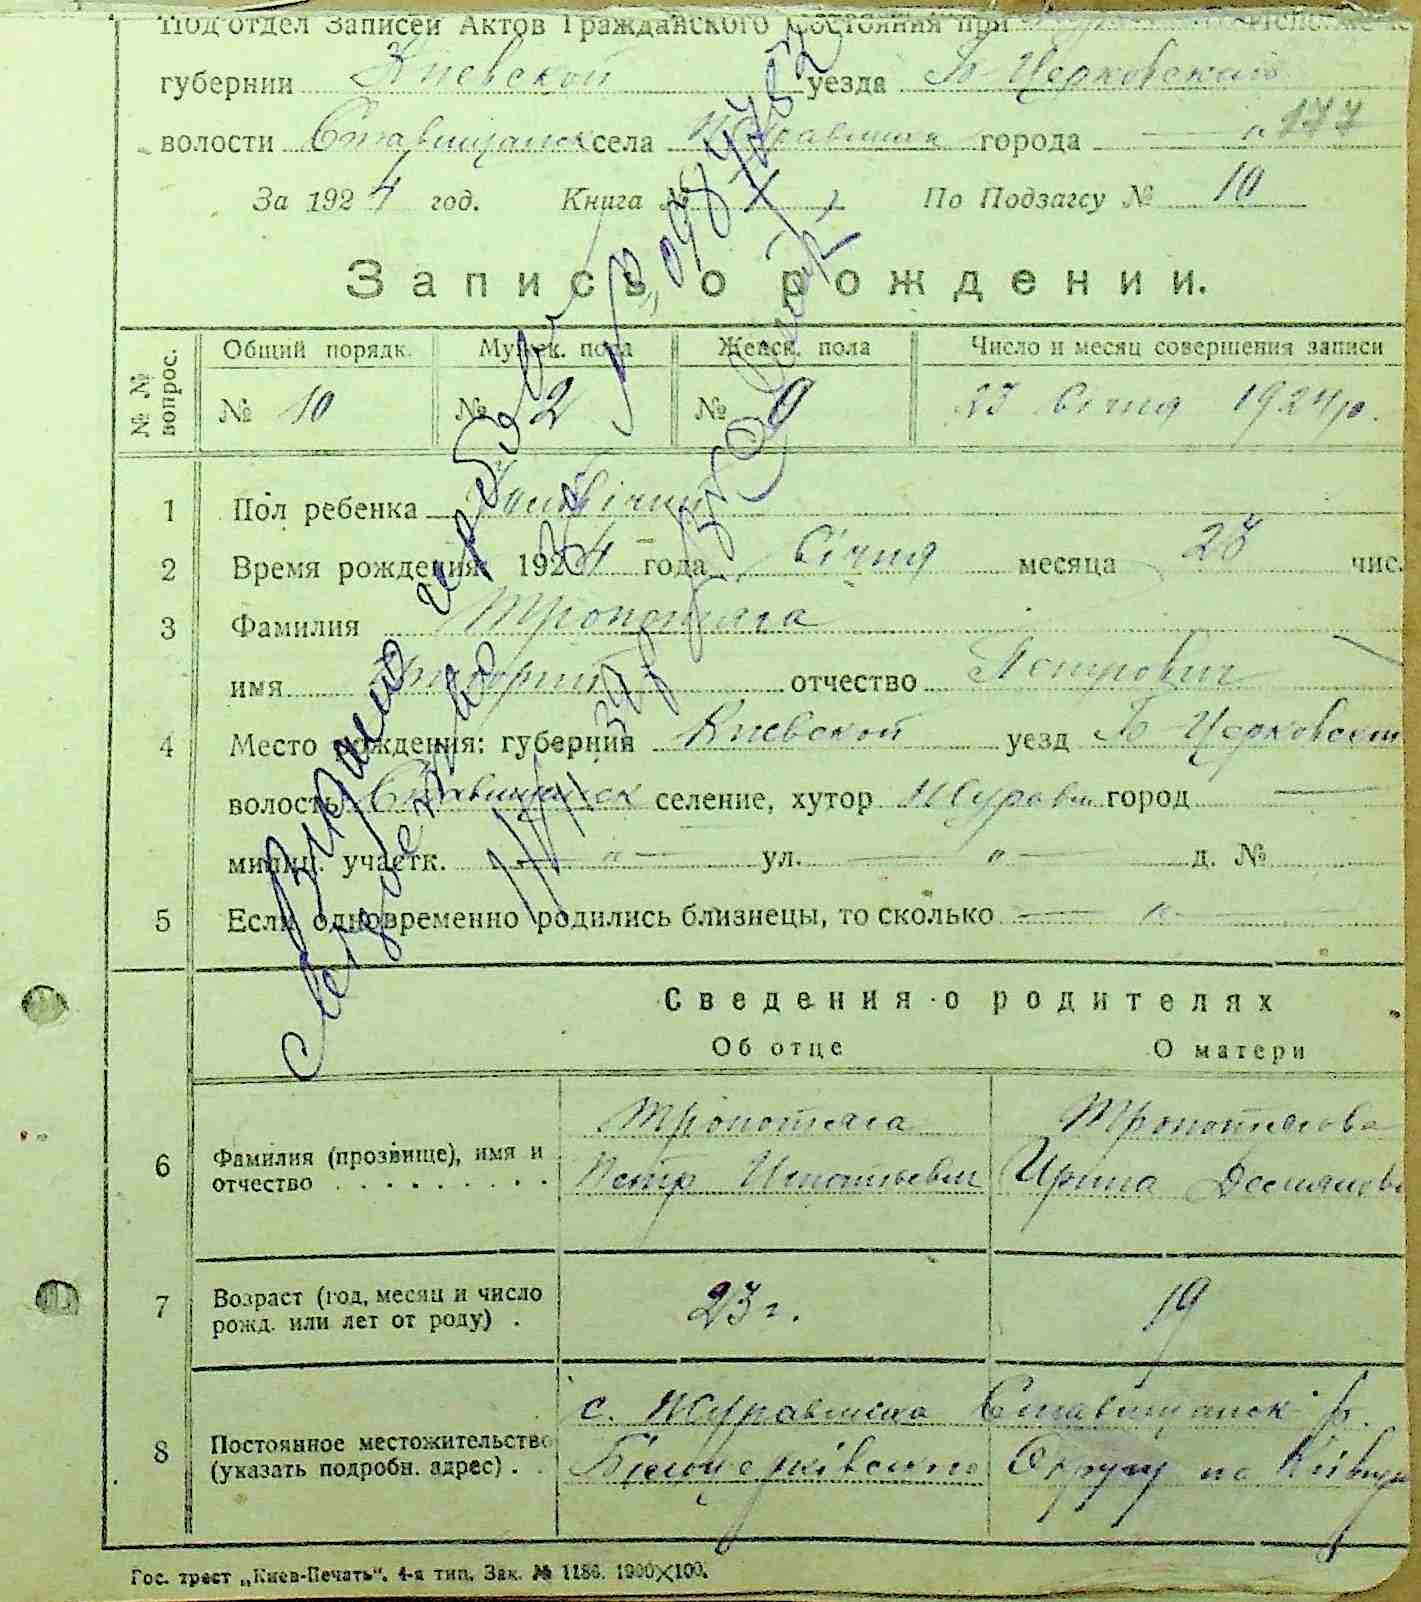 Под'отдел Записей Актов Гражданского Состояния при
губернии Киевской уезда Б-Церковского
волости Ставищанск села Журавлиха города — „ 177
За 1924 год. Книга № 1 По Подзагсу № 10
Запись о рождении.
№ № вопрос. Общий порядк. Мужск. пола Женск. пола Число и месяц совершения записи
№ 10 № 2 № 9 27 Січня 1924 р.
1 Пол ребенка
2 Время рождения: 1924 года Січня месяца 23 чис.
3 Фамилия Тропотяга
имя отчество Петрович
4 Место рождения: губерния Киевской уезд Б-Церковск
волость Ставищанск селение, хутор Журавл город —
милиц. участк. — „ — ул. — „ — д. №
5 Если одновременно родились близнецы, то сколько — „ —
Видано
098
Сведения о родителях
Об отце О матери
6 Фамилия (прозвище), имя и отчество . . . . . . . . . .
Тропотяга Петр Игнатьевич
Тропотягова Ирина
7 Возраст (год, месяц и число рожд. или лет от роду) .
23 г. 19
8 Постоянное местожительство (указать подробн. адрес) . .
с. Журавлиха Ставищанск р.
Білоцерківського Округу на Київщ
Гос. трест „Киев-Печать“. 4-я тип. Зак. № 1186. 1000×100.